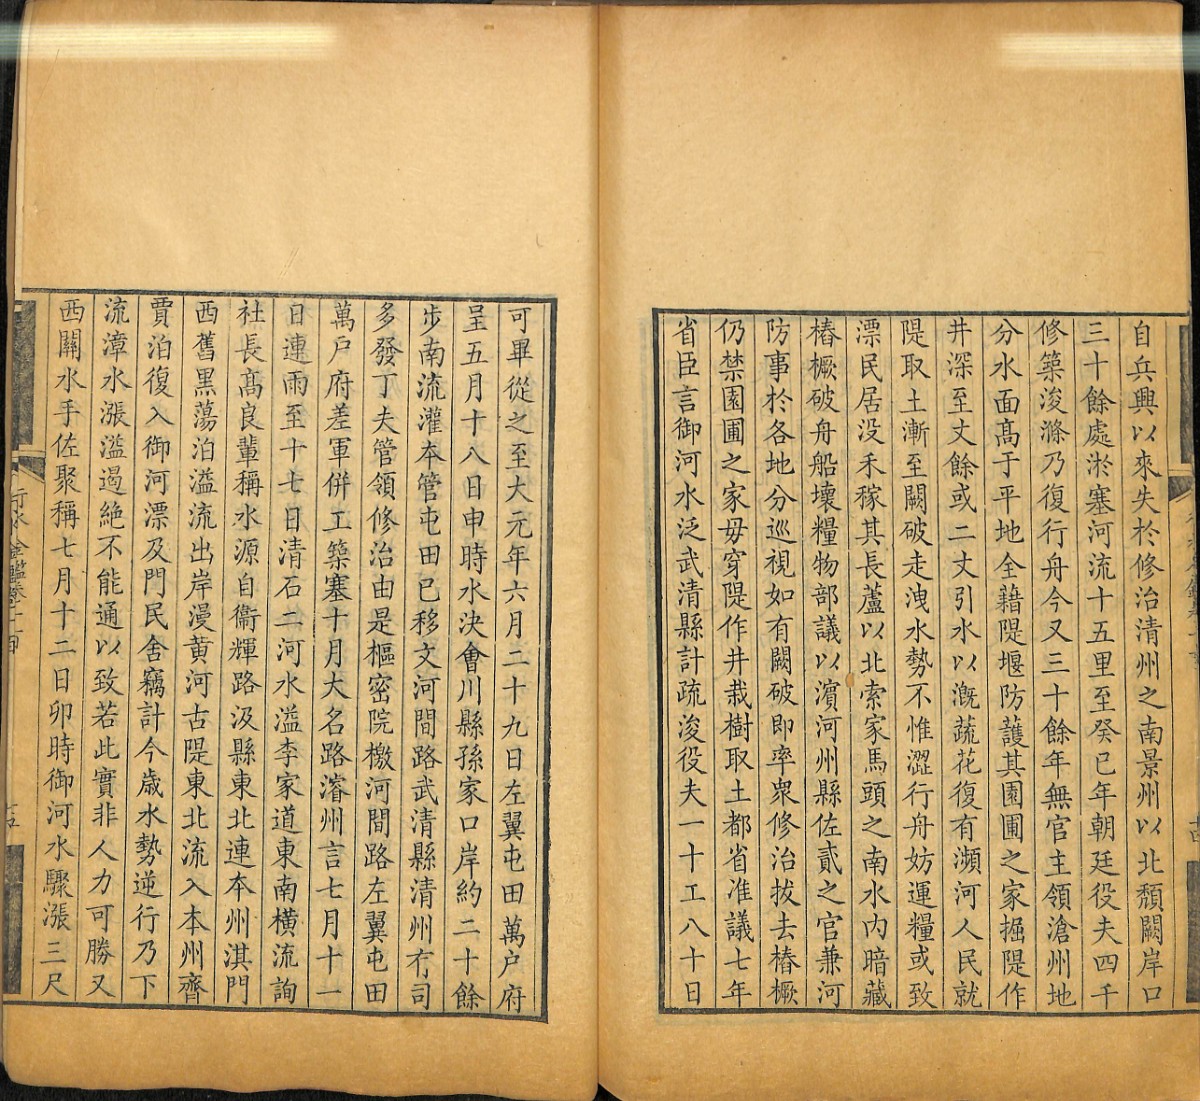 自兵興以來失於修治清州之南景州以北頹闕岸口
三十餘處淤塞河流十五里至癸巳年朝廷役夫四千
修築浚滌乃復行舟今又三十餘年無官主領滄州地
分水面髙于平地全藉隄堰防護其園圃之家掘隄作
井深至丈餘或二丈引水以漑蔬花復有瀕河人民就
隄取土漸至闕破走洩水勢不惟澀行舟妨運糧或致
漂民居没禾稼其長蘆以北索家馬頭之南水内暗藏
樁橛破舟船壞糧物部議以濵河州縣佐貳之官兼河
防事於各地分巡視如有闕破即率衆修治拔去樁橛
仍禁園圃之家毋穿隄作井栽樹取土都省准議七年
省臣言御河水泛武清縣計疏浚役夫一十工八十日
可畢從之至大元年六月二十九日左翼屯田萬户府
呈五月十八日申時水決會川縣孫家口岸約二十餘
步南流灌本管屯田已移文河間路武清縣清州有司
多發丁夫管領修治由是樞密院檄河間路左翼屯田
萬户府差軍併工築塞十月大名路濬州言七月十一
日連雨至十七日清石二河水溢李家道東南横流詢
社長髙良輩稱水源自衞輝路汲縣東北連本州淇門
西舊黒蕩泊溢流出岸漫黄河古隄東北流入本州齊
賈泊復入御河漂及門民舍竊計今歲水勢逆行乃下
流漳水漲溢遏絶不能通以致若此實非人力可勝又
西關水手佐聚稱七月十二日卯時御河水驟漲三尺
行水金鑑卷一百
十五